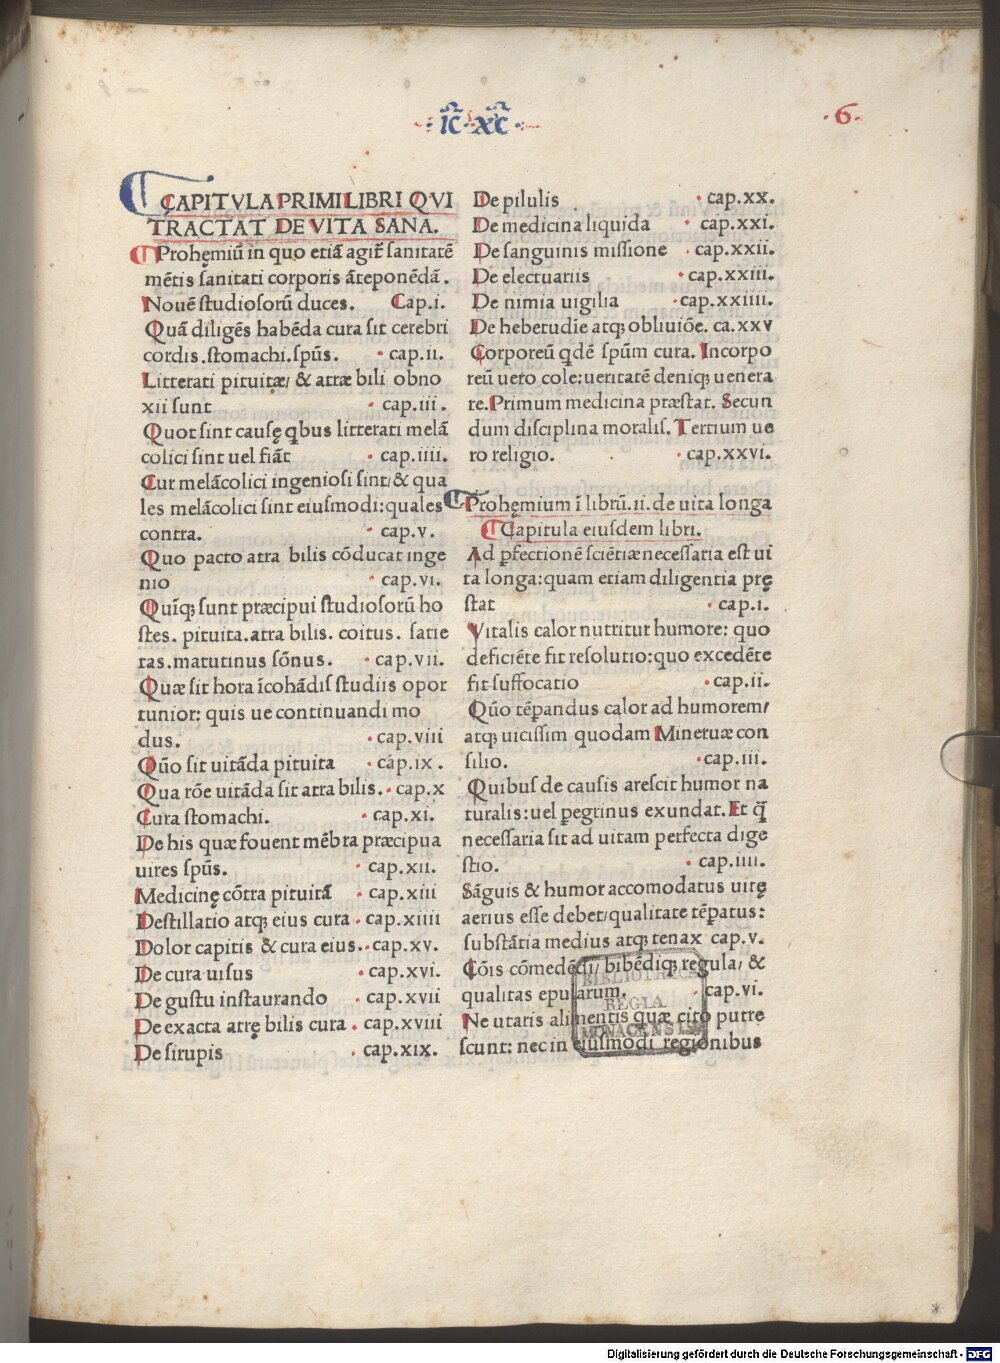 ·IC·XC·
·6·
CAPITVLA PRIMI LIBRI QVI
TRACTAT DE VITA SANA.
Prohęmiū in quo etiā agit̄ sanitatē
mētis sanitati corporis āteponēdā.
Nouē studiosorū duces. Cap.i.
Quā diligēs habēda cura sit cerebri
cordis.stomachi.spūs. cap.ii.
Litterati pituitæ/ & atræ bili obno
xii sunt cap.iii.
Quot sint causę qbus litterati melā
colici sint uel fiāt cap.iiii.
Cur melācolici ingeniosi sint/& qua
les melācolici sint eiusmodi:quales
contra. cap.v.
Quo pacto atra bilis cōducat inge
nio cap.vi.
Quīqꝫ sunt præcipui studiosorū ho
stes. pituita.atra bilis. coitus. satie
tas.matutinus sōnus. cap.vii.
Quæ sit hora īcohādis studiis opor
tunior: quis ue continuandi mo
dus. cap.viii
Qūo sit uitāda pituita cap.ix.
Qua rōe uitāda sit atra bilis. cap.x
Cura stomachi. cap.xi.
De his quæ fouent mēbra præcipua
uires spūs. cap.xii.
Medicinę cōtra pituitā cap.xiii
Destillatio atqꝫ eius cura cap.xiiii
Dolor capitis & cura eius. cap.xv.
De cura uisus cap.xvi.
De gustu instaurando cap.xvii
De exacta atrę bilis cura cap.xviii
De sirupis cap.xix.
De pilulis cap.xx.
De medicina liquida cap.xxi.
De sanguinis missione cap.xxii.
De electuariis cap.xxiii.
De nimia uigilia cap.xxiiii.
De hebetudīe atqꝫ obliuiōe. ca.xxv
Corporeū qdē spūm cura. Incorpo
reū uero cole:ueritatē deniqꝫ uenera
re.Primum medicina præstat. Secun
dum disciplina moralis. Tertium ue
ro religio. cap.xxvi.
Prohęmium ī librū.ii.de uita longa
Capitula eiusdem libri.
Ad ꝑfectionē sciētiæ necessaria est ui
ta longa:quam etiam diligentia prę
stat cap.i.
Vitalis calor nutritur humore: quo
deficiēte fit resolutio:quo excedēte
fit suffocatio cap.ii.
Qūo tēꝑandus calor ad humorem/
atqꝫ uicissim quodam Mineruæ con
silio. cap.iii.
Quibus de causis arescit humor na
turalis:uel pegrinus exundat. Et q̄
necessaria sit ad uitam perfecta dige
stio. cap.iiii.
Sāguis & humor accomodatus uitę
aerius esse debet/qualitate tēꝑatus:
substātia medius atqꝫ tenax cap.v.
Cōis cōmedēdi/ bibēdiqꝫ regula/ &
qualitas epularum. cap.vi.
Ne utaris alimentis quæ cito putre
scunt: nec in eiusmodi regionibus
BIBLIOTHECA
REGIA
MONACENSIS.
Digitalisierung gefördert durch die Deutsche Forschungsgemeinschaft - DFG